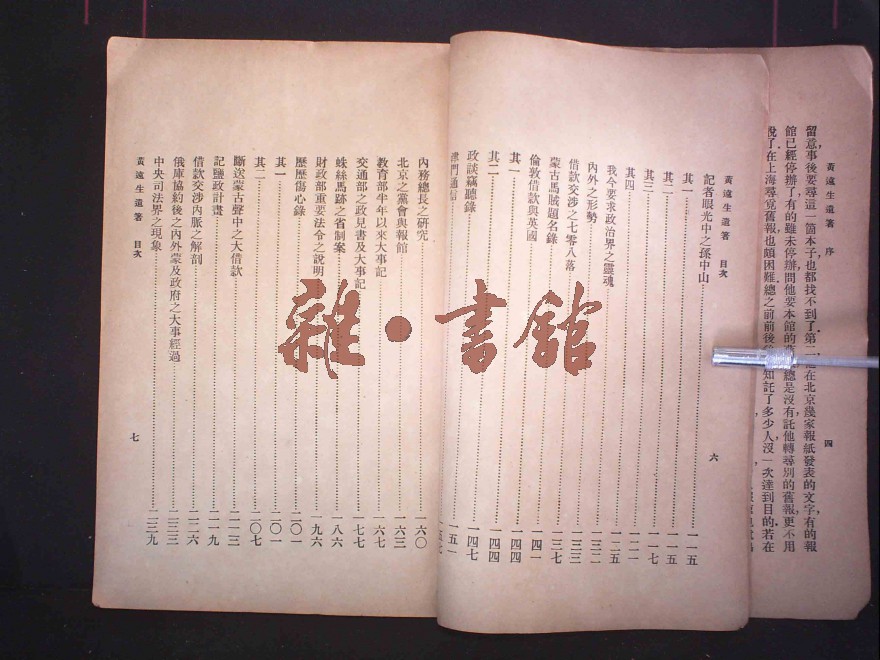 黃遠生遺著 序 四
留意事後要尋這一箇本子也都找不到了第二是在北京幾家報紙發表的文字有的報
館已經停辦了有的雖未停辦問他要本館的舊報總是沒有託他轉尋別的舊報更不用
說了在上海尋覓舊報也頗困難總之前前後 知託了多少人沒一次達到目的若在
黃遠生遺著 目次 六
記者眼光中之孫中山……一一五
其一……一一五
其二……一一七
其三……一二一
其四……一二五
我今要求政治界之靈魂……一三二
內外之形勢……一三三
借款交涉之七零八落……一三七
蒙古馬賊題名錄……一四一
倫敦借款與英國……一四四
其一……一四四
其二……一四七
政談竊聽錄……一五一
門通信……一五七
內務總長之研究……一六〇
北京之黨會與報館……一六三
教育部半年以來大事記……一六七
交通部之政見書及大事記……一七七
蛛絲馬跡之省制案……一八六
財政部重要法令之說明……一九六
歷歷傷心錄……二〇一
其一……二〇一
其二……二〇七
斷送蒙古聲中之大借款……二一三
記鹽政計畫……二一九
借款交涉內脈之解剖……二二六
俄庫協約後之內外蒙及政府之大事經過……二三三
中央司法界之現象……二三九
黃遠生遺著 目次 七
雜·書館